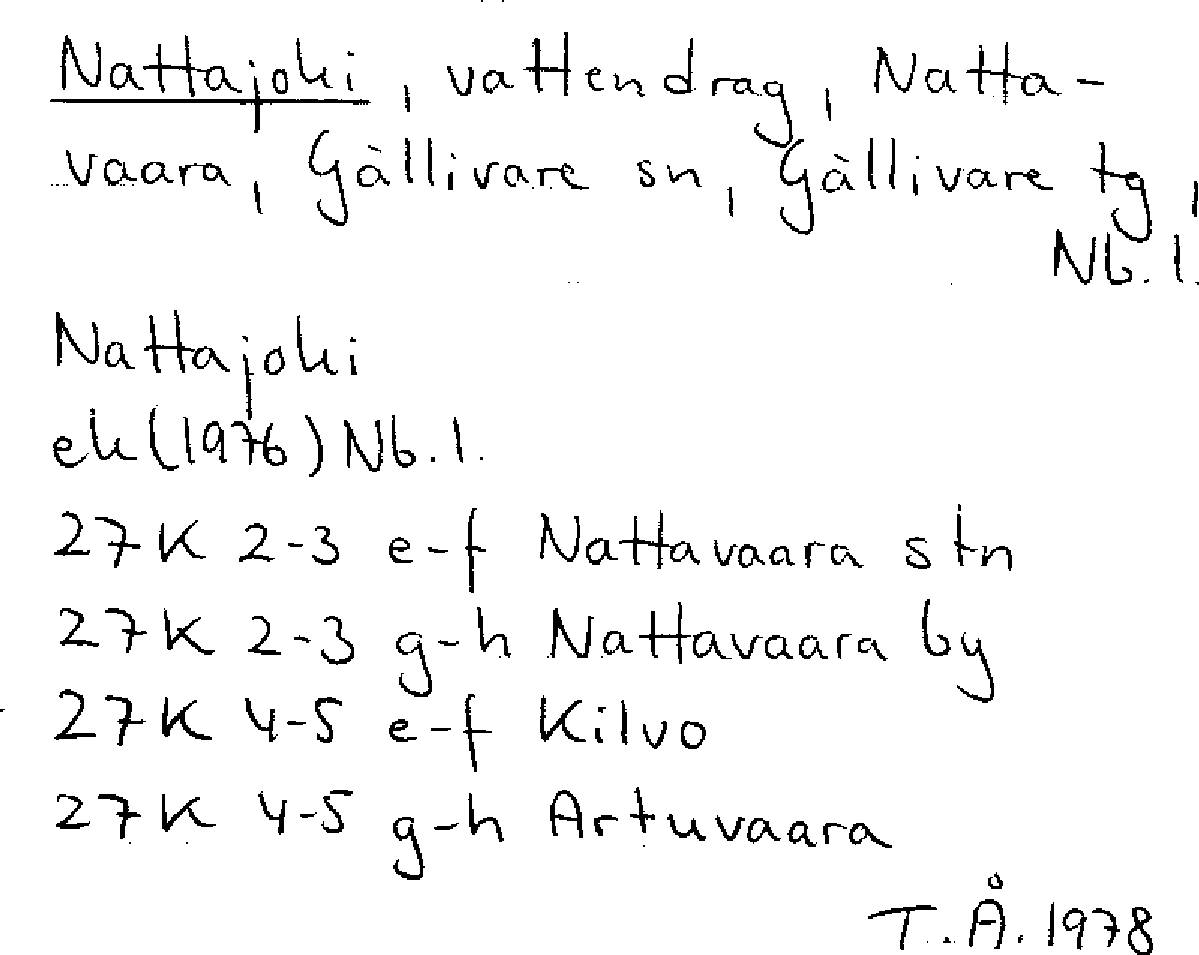 Nattajoki, vattendrag, Natta-
vaara, Gällivare sn, Gällivare tg,
Nb. l.
Nattajoki
ek (1976) Nb. l.
27K 2-3 e-f Nattavaara stn
27K 2-3 g-h Nattavaara by
27K 4-5 e-f Kilvo
27K 4-5 g-h Artuvaara
T.Å. 1978